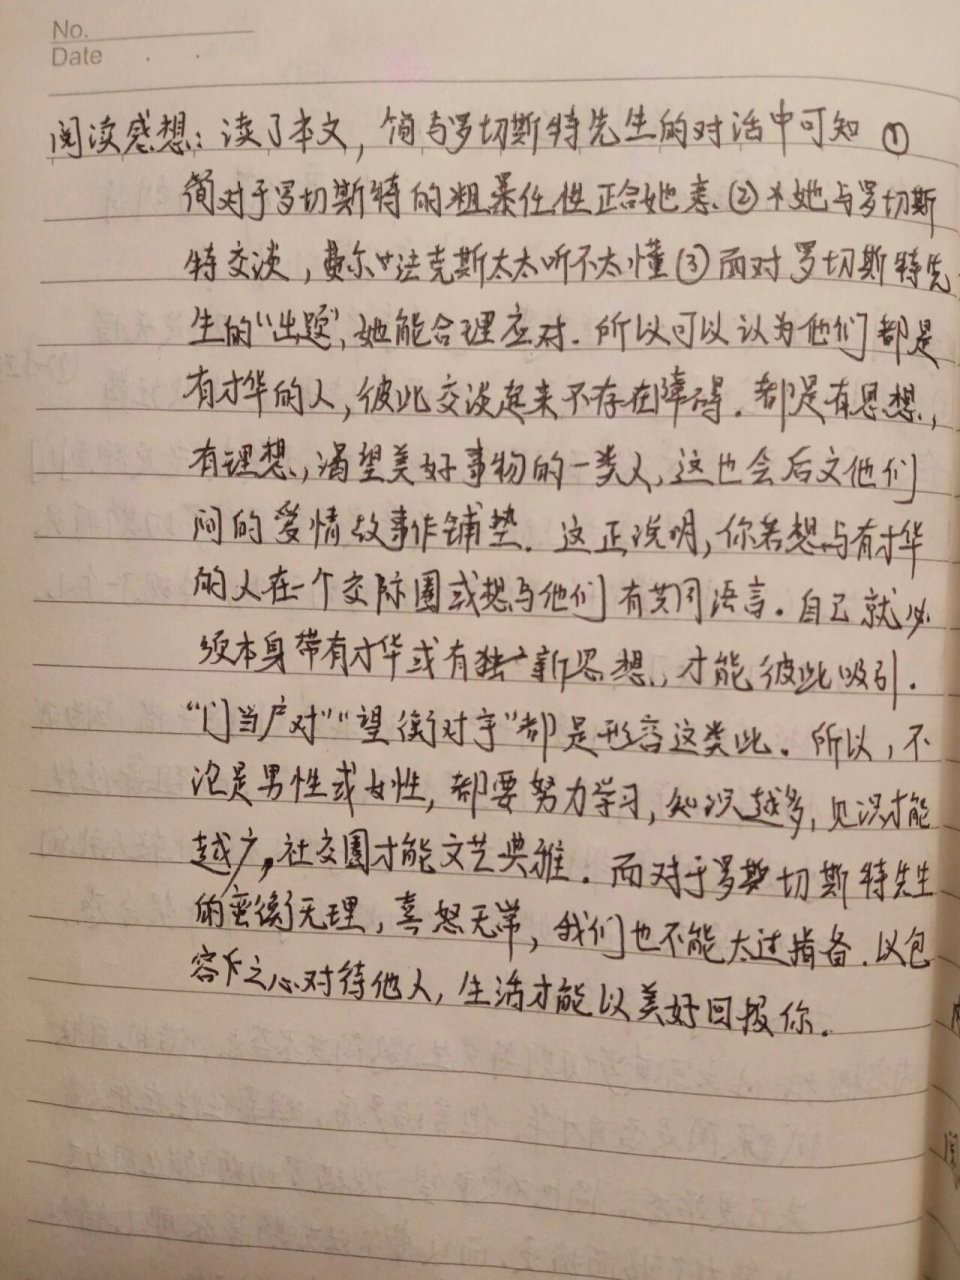 No.
Date
阅读感想：读了本文，简与罗切斯特先生的对话中可知 ①
简对于罗切斯特的粗暴任性正合她意.②她与罗切斯
特交谈，费尔法克斯太太听不太懂③面对罗切斯特先
生的“出题”,她能合理应对.所以可以认为他们都是
有才华的人,彼此交谈起来不存在障碍.都是有思想,
有理想,渴望美好事物的一类人,这也会后文他们
间的爱情故事作铺垫.这正说明,你若想与有才华
的人在一个交际圈或想与他们有共同语言.自己就必
须本身带有才华或有独立新思想,才能彼此吸引.
“门当户对”“望衡对宇”都是形容这类此.所以,不
论是男性或女性,都要努力学习,知识越多,见识才能
越广,社交圈才能文艺典雅.而对于罗切斯特先生
的蛮衡无理,喜怒无常,我们也不能太过指备.以包
容斥之心对待他人,生活才能以美好回报你.